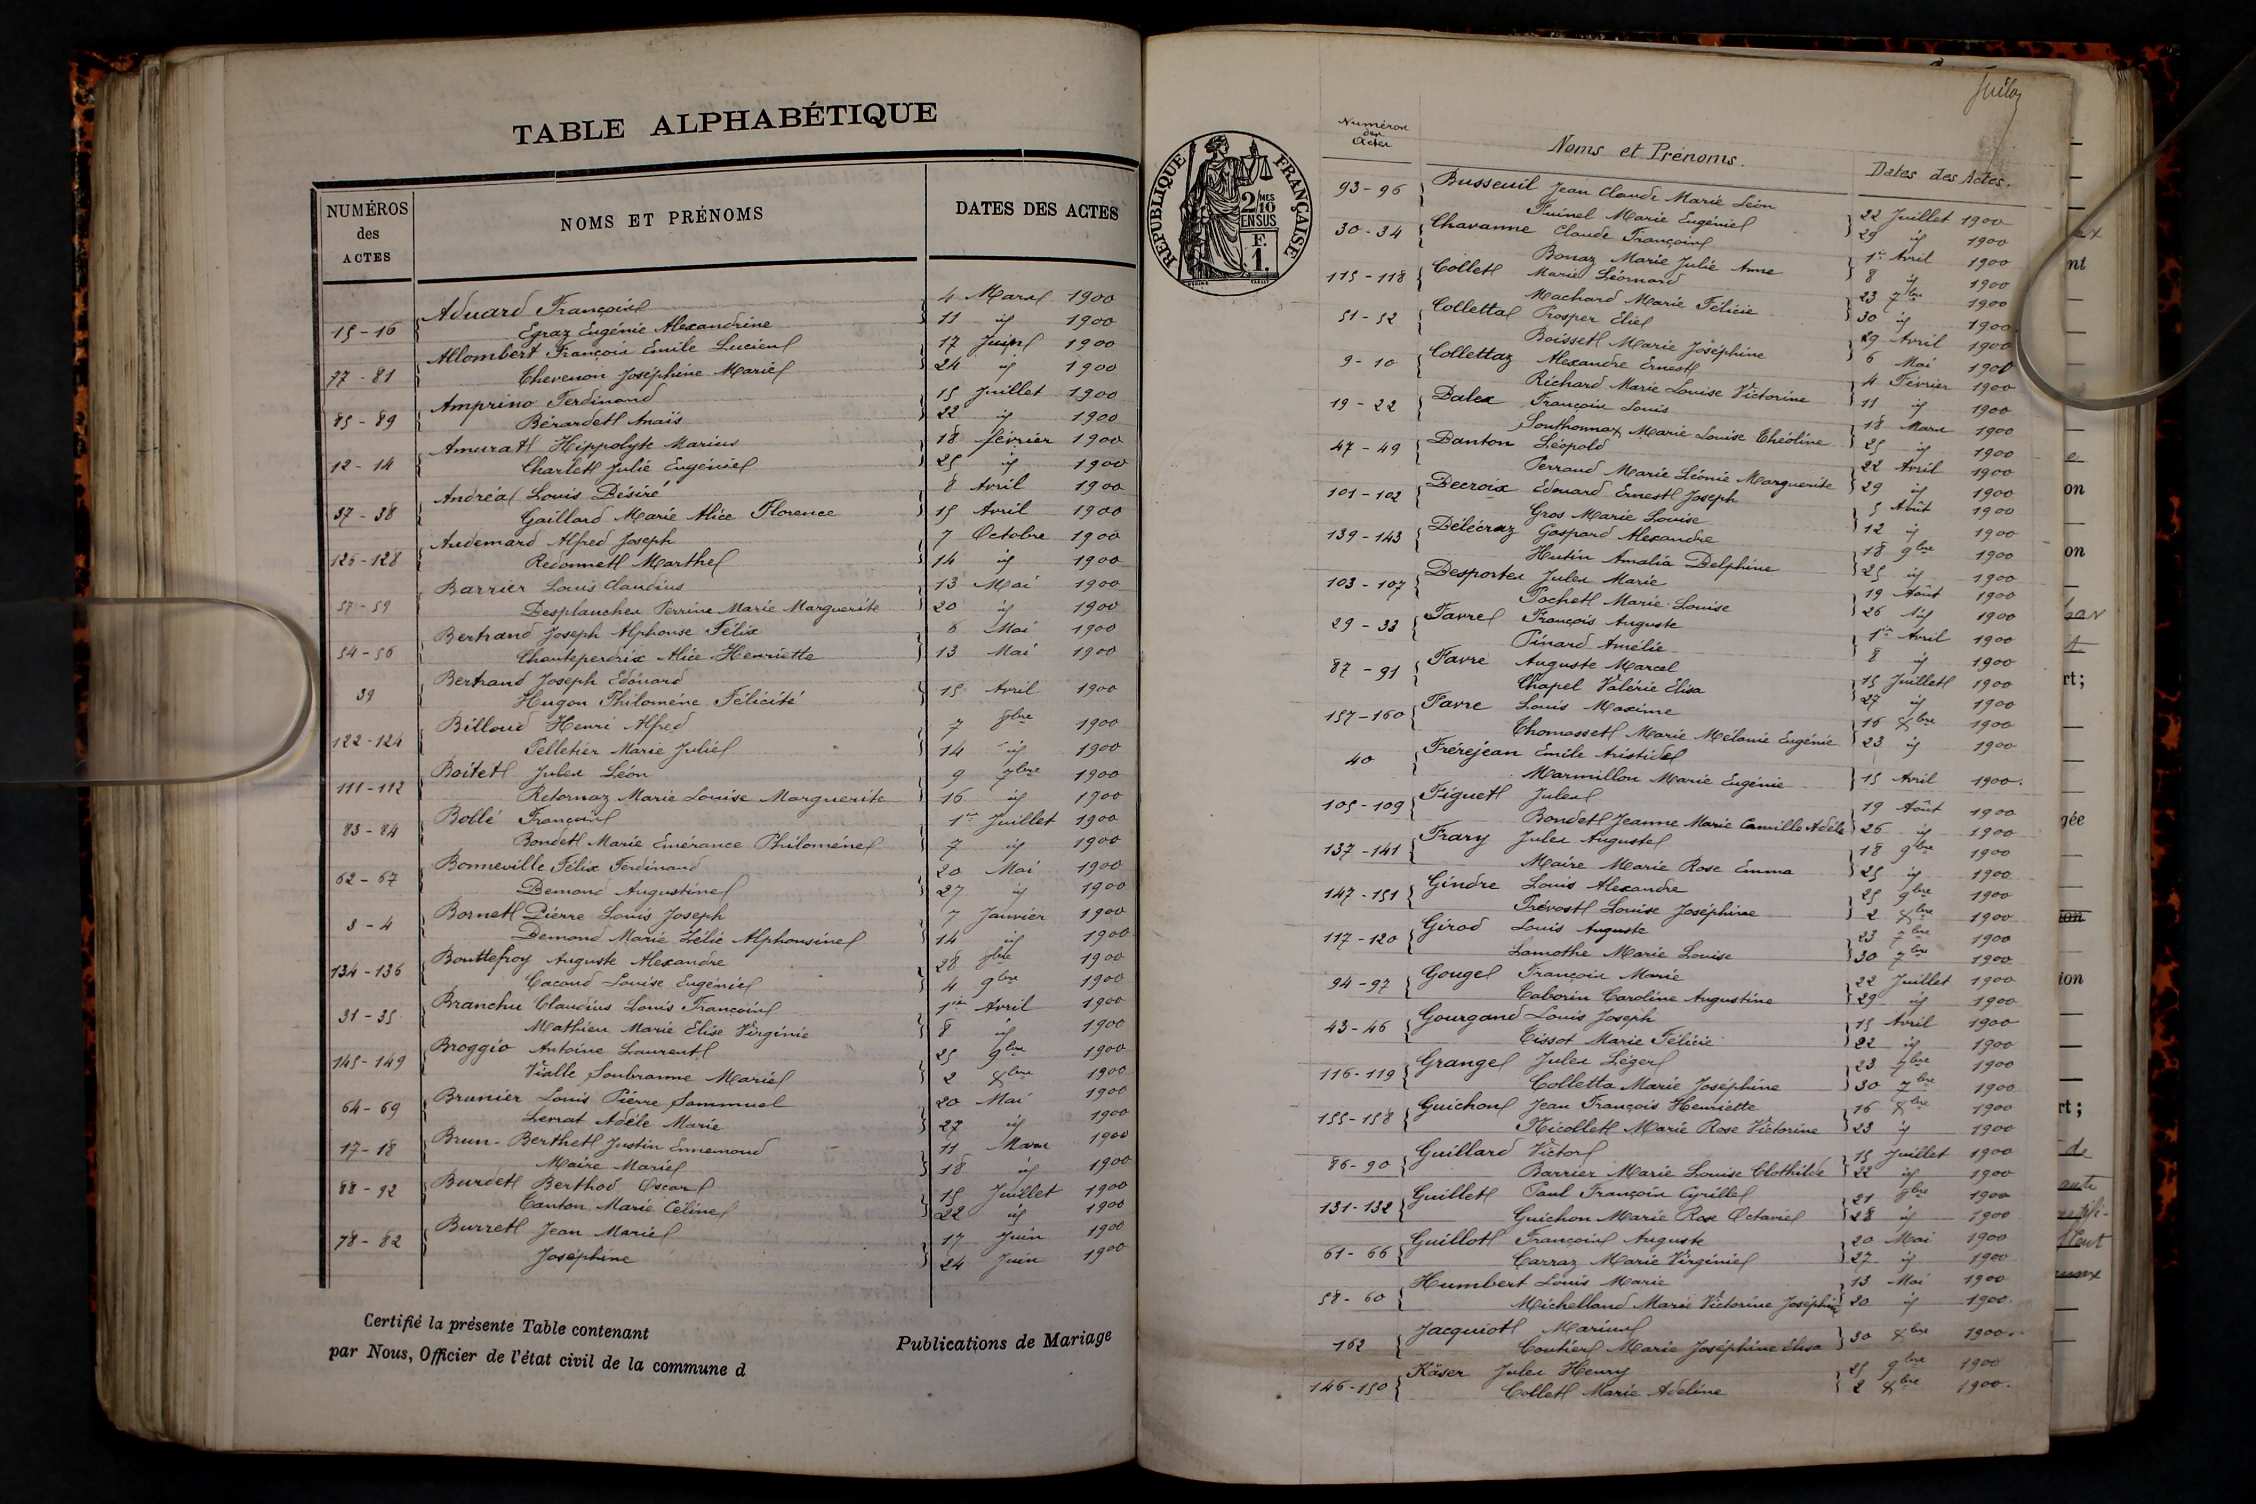 TABLE ALPHABÉTIQUE
NUMÉROS
des
ACTES
NOMS ET PRÉNOMS
DATES DES ACTES
Aduard François 4 Mars 1900
15-16 Egraz Eugénie Alexandrine 11 id 1900
Allombert François Emile Lucien 17 Juin 1900
77-81 Thevenon Joséphine Marie 24 id 1900
Amprino Ferdinand 15 Juillet 1900
85-89 Bérardet Anaïs 22 id 1900
Amurat Hippolyte Marius 18 février 1900
12-14 Charlet Julie Eugénie 25 id 1900
Andréa Louis Désiré 8 Avril 1900
37-38 Gaillard Marie Alice Florence 15 Avril 1900
Audemard Alfred Joseph 7 Octobre 1900
125-128 Redonnet Marthe 14 id 1900
Barrier Louis Claudius 13 Mai 1900
57-59 Desplanches Perrine Marie Marguerite 20 id 1900
Bertrand Joseph Alphonse Félix 6 Mai 1900
54-56 Chanteperdrix Alice Henriette 13 Mai 1900
Bertrand Joseph Edouard
39 Hugon Philomène Félicité 15 Avril 1900
Billoud Henri Alfred 7 8bre 1900
122-124 Pelletier Marie Julie 14 id 1900
Boitet Jules Léon 9 7bre 1900
111-112 Retornaz Marie Louise Marguerite 16 id 1900
Bollé François 1er Juillet 1900
83-84 Bondet Marie Emérance Philomène 7 id 1900
Bonneville Félix Ferdinand 20 Mai 1900
62-67 Demond Augustine 27 id 1900
Bornet Pierre Louis Joseph 7 Janvier 1900
3-4 Demond Marie Zélie Alphonsine 14 id 1900
Bouttefroy Auguste Alexandre 28 8bre 1900
134-136 Cacoud Louise Eugénie 4 9bre 1900
Branchu Claudius Louis François 1er Avril 1900
31-35 Mathieu Marie Elise Virginie 8 id 1900
Broggio Antoine Laurent 25 9bre 1900
145-149 Vialle Soubranne Marie 2 Xbre 1900
Brunier Louis Pierre Sammuel 20 Mai 1900
64-69 Lerrat Adèle Marie 27 id 1900
Brun-Berthet Justin Ennemond 11 Mars 1900
17-18 Maire Marie 18 id 1900
Burdet Berthod Oscar 15 Juillet 1900
88-92 Canton Marie Céline 22 id 1900
Burret Jean Marie 17 Juin 1900
78-82 Joséphine 24 Juin 1900
Certifié la présente Table contenant Publications de Mariage
par Nous, Officier de l'état civil de la commune d
RÉPUBLIQUE FRANÇAISE
2 MES
10
EN SUS
F.
1.
Numéros
des
Actes
Noms et Prénoms.
Dates des Actes.
93-96 Busseuil Jean Claude Marie Léon 22 Juillet 1900
Fuinel Marie Eugénie 29 id 1900
30-34 Chavanne Claude François 1er Avril 1900
Bonaz Marie Julie Anne 8 id 1900
115-118 Collet Marie Léonard 23 7bre 1900
Machard Marie Félicie 30 id 1900
51-52 Colletta Prosper Elie 29 Avril 1900
Boisset Marie Joséphine 6 Mai 1900
9-10 Collettaz Alexandre Ernest 4 Février 1900
Richard Marie Louise Victorine 11 id 1900
19-22 Dalex François Louis 18 Mars 1900
Southonnax Marie Louise Théoline 25 id 1900
47-49 Danton Léopold 22 Avril 1900
Perraud Marie Léonie Marguerite 29 id 1900
101-102 Decroix Edouard Ernest Joseph 5 Août 1900
Gros Marie Louise 12 id 1900
139-143 Délécraz Gaspard Alexandre 18 9bre 1900
Hutin Amalia Delphine 25 id 1900
103-107 Desportes Jules Marie 19 Août 1900
Pochet Marie Louise 26 id 1900
29-33 Favre François Auguste 1er Avril 1900
Pinard Amélie 8 id 1900
87-91 Favre Auguste Marcel 15 Juillet 1900
Chapel Valérie Elisa 27 id 1900
157-160 Favre Louis Maxime 16 Xbre 1900
Thomasset Marie Mélanie Eugénie 23 id 1900
40 Fréréjean Emile Aristide
Marmillon Marie Eugénie 15 Avril 1900.
105-109 Figuet Jules 19 Août 1900
Bondet Jeanne Marie Camille Adèle 26 id 1900
137-141 Frary Jules Auguste 18 9bre 1900
Maire Marie Rose Emma 25 id 1900
147-151 Gindre Louis Alexandre 25 9bre 1900
Prévost Louise Joséphine 2 Xbre 1900
117-120 Girod Louis Auguste 23 7bre 1900
Lamothe Marie Louise 30 7bre 1900
94-97 Gouge François Marie 22 Juillet 1900
Taborin Caroline Augustine 29 id 1900
43-46 Gourgand Louis Joseph 15 Avril 1900
Tissot Marie Félicie 22 id 1900
116-119 Grange Jules Léger 23 7bre 1900
Colletta Marie Joséphine 30 7bre 1900
155-158 Guichon Jean François Henriette 16 Xbre 1900
Nicollet Marie Rose Victorine 23 id 1900
86-90 Guillard Victor 15 Juillet 1900
Barrier Marie Louise Clothilde 22 id 1900
131-132 Guillet Paul François Cyrille 21 8bre 1900
Guichon Marie Rose Octavie 28 id 1900
61-66 Guillot François Auguste 20 Mai 1900
Carraz Marie Virginie 27 id 1900
58-60 Humbert Louis Marie 13 Mai 1900
Michelland Marie Victorine Joséphine 20 id 1900.
162 Jacquiot Marius
Coutier Marie Joséphine Elisa 30 Xbre 1900.
146-150 Käser Jules Henry 25 9bre 1900
Collet Marie Adeline 2 Xbre 1900.